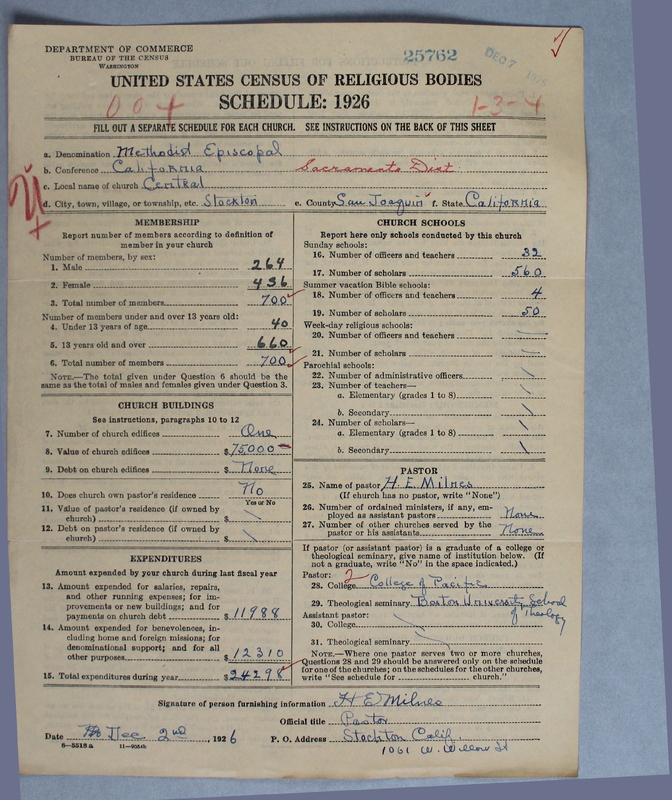 DEPARTMENT OF COMMERCE
BUREAU OF THE CENSUS
WASHINGTON
25762
DEC 7
UNITED STATES CENSUS OF RELIGIOUS BODIES
SCHEDULE: 1926
004
1-3-4
FILL OUT A SEPARATE SCHEDULE FOR EACH CHURCH. SEE INSTRUCTIONS ON THE BACK OF THIS SHEET
a. Denomination Methodist Episcopal
b. Conference California Sacramento Dist
c. Local name of church Central
d. City, town, village, or township, etc. Stockton e. County San Joaquin f. State California
MEMBERSHIP
Report number of members according to definition of
member in your church
Number of members, by sex:
1. Male 264
2. Female 436
3. Total number of members 700
Number of members under and over 13 years old:
4. Under 13 years of age 40
5. 13 years old and over 660
6. Total number of members 700
NOTE.—The total given under Question 6 should be the
same as the total of males and females given under Question 3.
CHURCH BUILDINGS
See instructions, paragraphs 10 to 12
7. Number of church edifices One
8. Value of church edifices $75000
9. Debt on church edifices $None
10. Does church own pastor's residence No
Yes or No
11. Value of pastor's residence (if owned by
church) $
12. Debt on pastor's residence (if owned by
church) $
EXPENDITURES
Amount expended by your church during last fiscal year
13. Amount expended for salaries, repairs,
and other running expenses; for im-
provements or new buildings; and for
payments on church debt $11988
14. Amount expended for benevolences, in-
cluding home and foreign missions; for
denominational support; and for all
other purposes $12310
15. Total expenditures during year $24298
CHURCH SCHOOLS
Report here only schools conducted by this church
Sunday schools:
16. Number of officers and teachers 32
17. Number of scholars 560
Summer vacation Bible schools:
18. Number of officers and teachers 4
19. Number of scholars 50
Week-day religious schools:
20. Number of officers and teachers
21. Number of scholars
Parochial schools:
22. Number of administrative officers
23. Number of teachers—
a. Elementary (grades 1 to 8)
b. Secondary
24. Number of scholars—
a. Elementary (grades 1 to 8)
b. Secondary
PASTOR
25. Name of pastor H. E. Milnes
(If church has no pastor, write "None")
26. Number of ordained ministers, if any, em-
ployed as assistant pastors None
27. Number of other churches served by the
pastor or his assistants None
If pastor (or assistant pastor) is a graduate of a college or
theological seminary, give name of institution below. (If
not a graduate, write "No" in the space indicated.)
Pastor:
28. College 2 College of Pacific
29. Theological seminary Boston University School
of Theology
Assistant pastor:
30. College
31. Theological seminary
NOTE.—Where one pastor serves two or more churches,
Questions 28 and 29 should be answered only on the schedule
for one of the churches; on the schedules for the other churches,
write "See schedule for church."
Signature of person furnishing information H E Milnes
Official title Pastor
Date Dec 2nd, 1926 P. O. Address Stockton Calif.
1061 W. Willow St
8—5518a 11—9051h